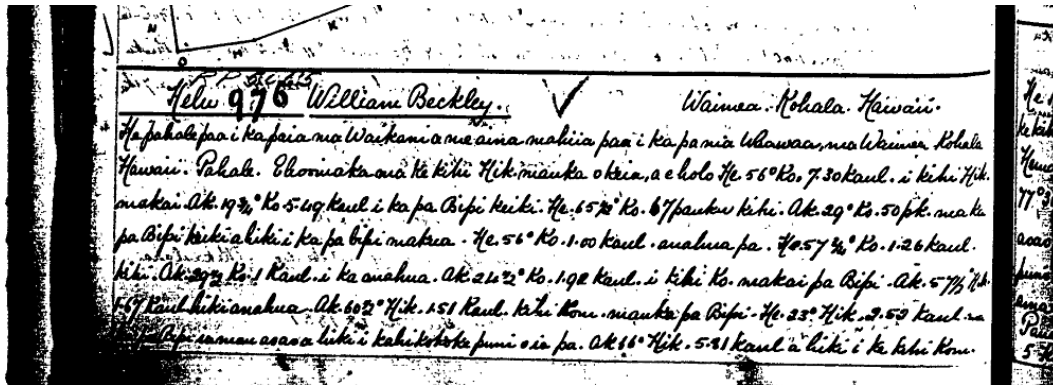 Helu 976 William Beckley. Waimea. Kohala. Hawaii.
He pahale paa i ka peia ma Waikani a me aina mahiia paa i ka pa nia Waawaa, ma Waimea Kohala
Hawaii. Pahale. E hoomaka ma ke kihi Hik. mauka o keia, a e holo He. 56° Ko. 7.30 kaul. i kihi Hik.
makai. Ak. 19¾° Ko. 5.49 kaul i ka pa Bipi keiki. He. 65½° Ko. 67 pauku kihi. Ak. 29° Ko. 50 pk. ma ka
pa Bipi keiki a hiki i ka pa bipi makua. He. 56° Ko. 1.00 kaul. anahua pa. He. 57¾° Ko. 1.26 kaul.
kihi. Ak. 29½ Ko. 1 Kaul. i ka anahua. Ak. 24½° Ko. 1.92 kaul. i kihi Ko. makai pa Bipi. Ak. 57½ Hik.
5.67 Kaul hiki anahua. Ak. 60½° Hik. 1.51 Kaul. kihi Kom. mauka pa Bipi. He. 23° Hik. 2.52 kaul. ma
pa Bipi a hiki i kahi kokoke puni o ia pa. Ak 66° Hik. 5.81 kaul a hiki i ke kihi Kom.